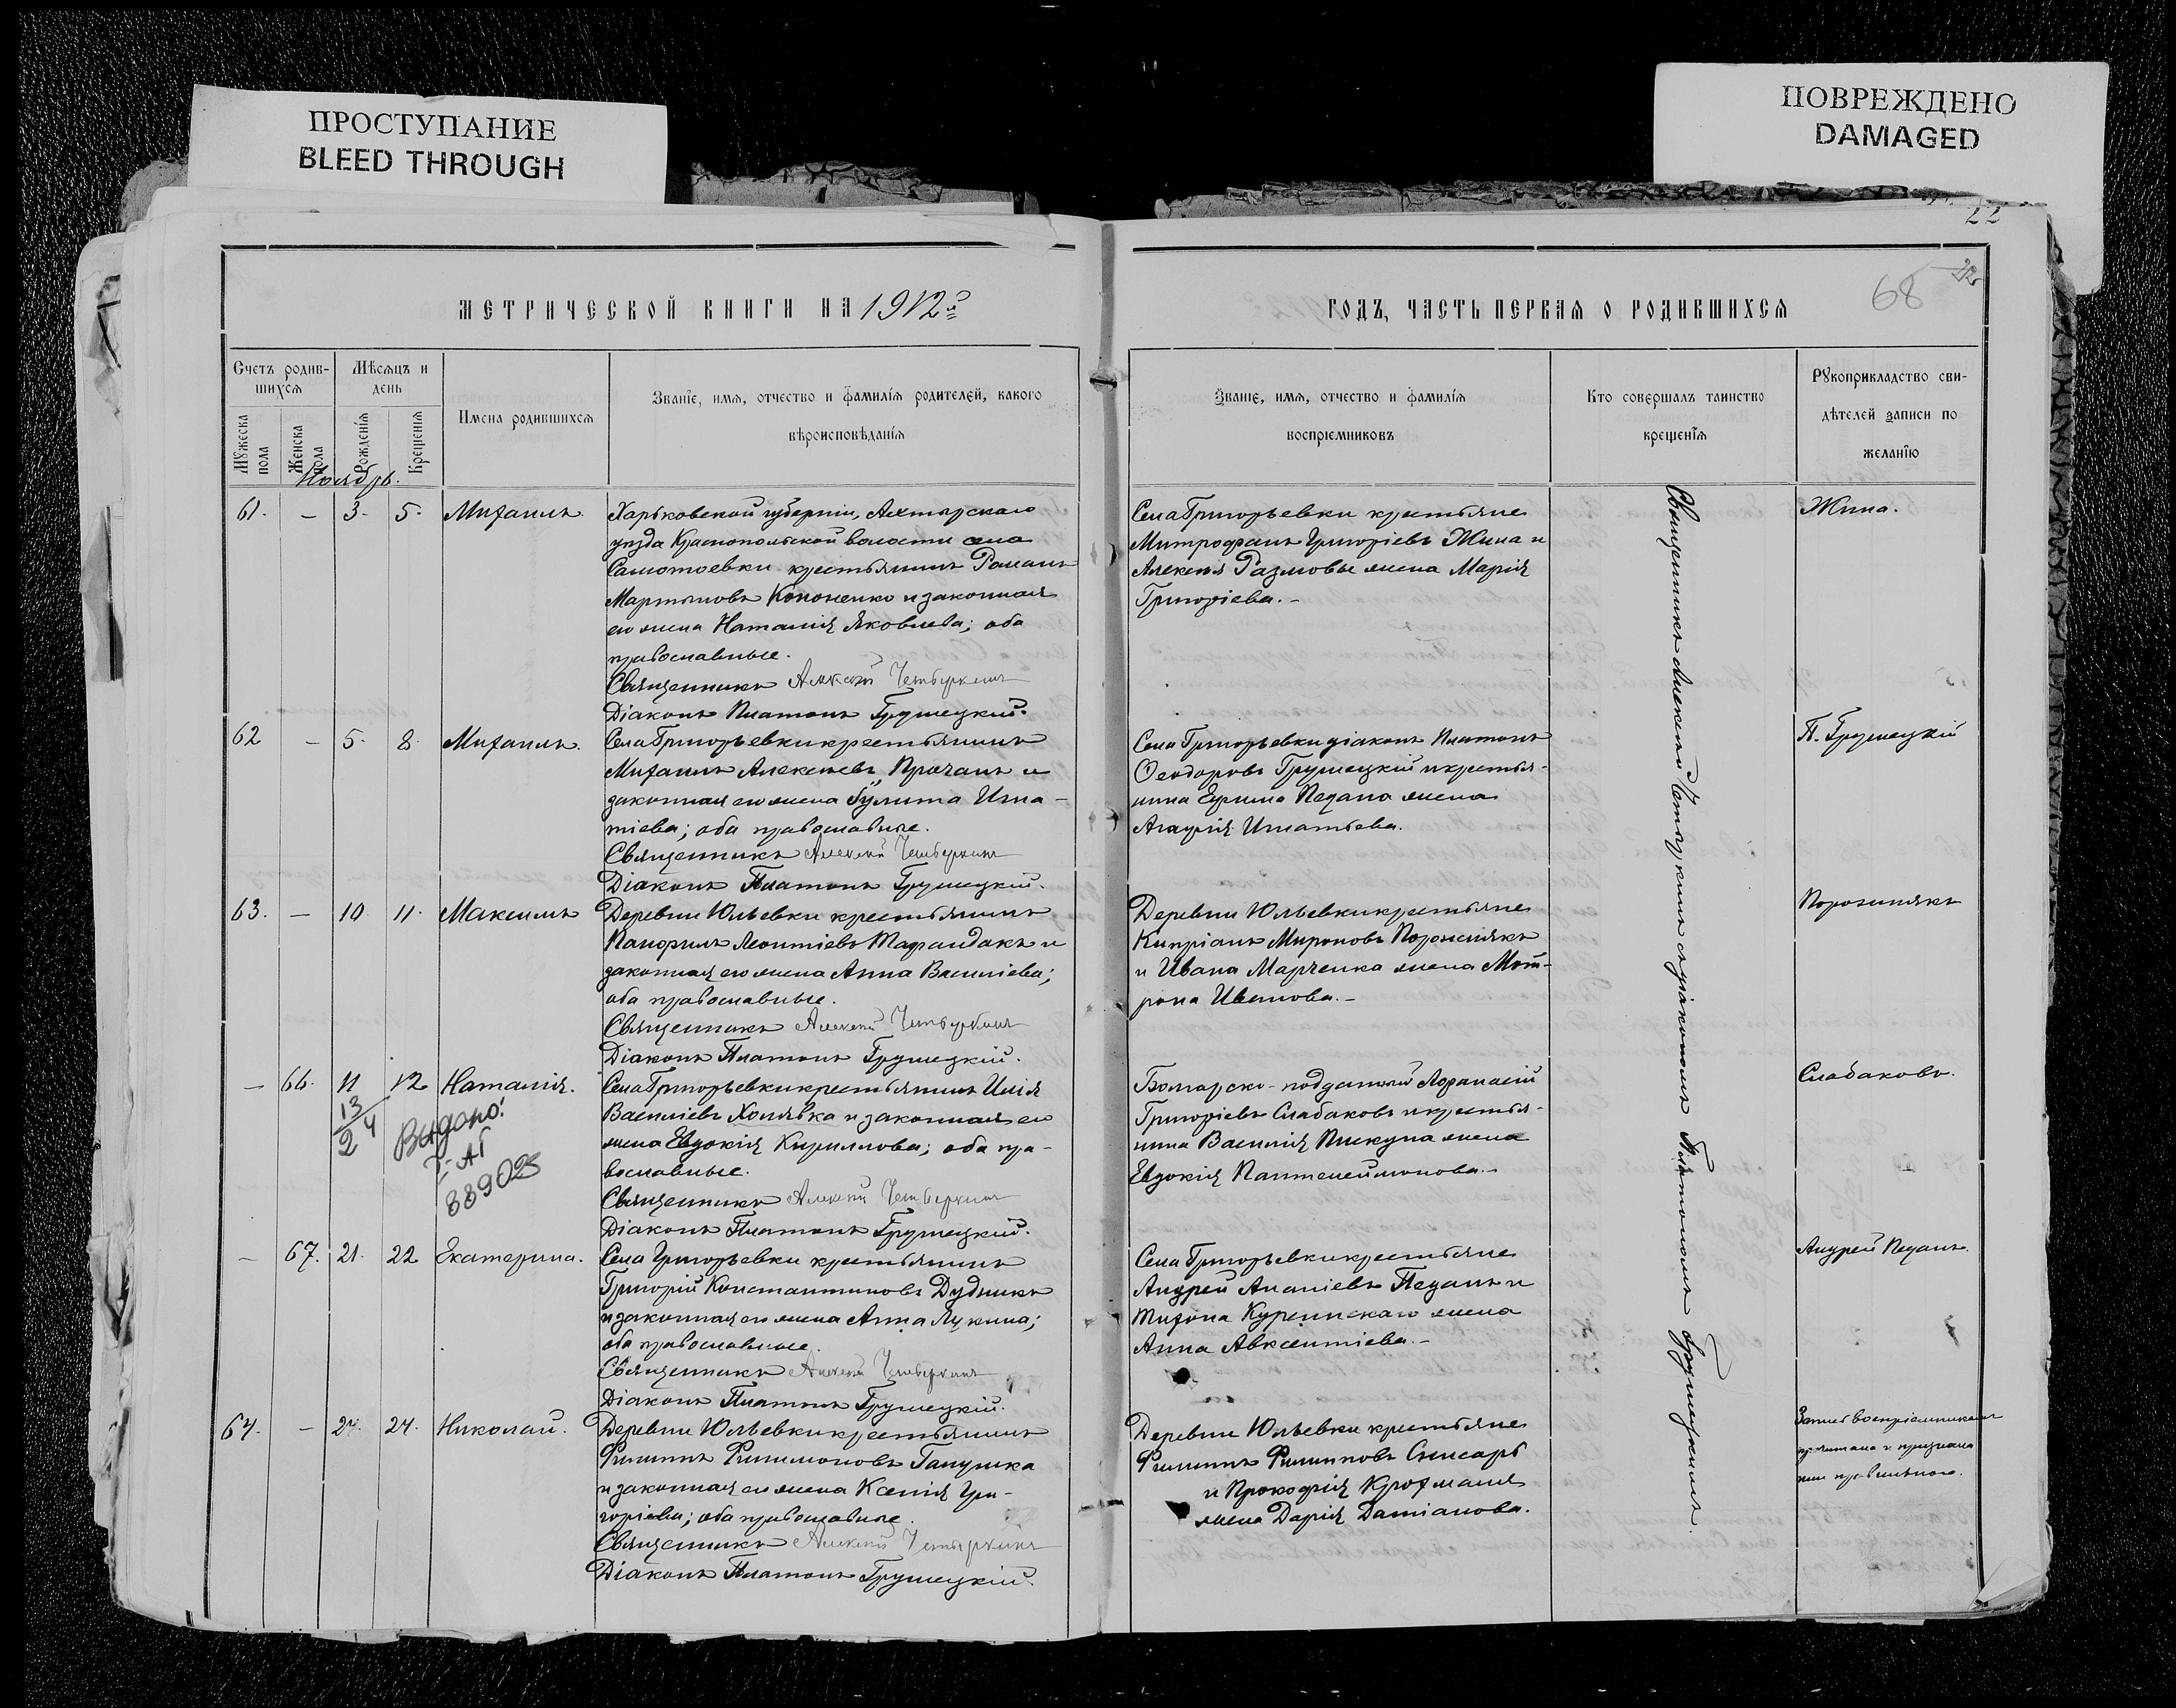 ПРОСТУПАНИЕ
BLEED THROUGH
ПОВРЕЖДЕНО
DAMAGED
22
68
МЕТРИЧЕСКОЙ КНИГИ НА 1912й
ГОДЪ, ЧАСТЬ ПЕРВАЯ О РОДИВШИХСЯ
Счетъ родив-
шихся
Мѣсяцъ и
день
Мужеска
пола
Женска
пола
Рожденія
Крещенія
Имена родившихся
Званіе, имя, отчество и фамилія родителей, какого
вѣроисповѣданія
Званіе, имя, отчество и фамилія
воспріемниковъ
Кто совершалъ таинство
крещенія
Рукоприкладство сви-
дѣтелей записи по
желанію
Ноябрь.
61. – 3. 5. Михаилъ.
Харьковской губерніи, Ахтырскаго
уѣзда Краснопольской волости села
Самотоевки крестьянинъ Романъ
Мартыновъ Кононенко и законная
его жена Наталія Яковлева; оба
православные.
Священникъ Алексѣй Четыркинъ
Діаконъ Платонъ Грушецкій.
Села Григорьевки крестьяне
Митрофанъ Григоріевъ Жила и
Алексѣя жена Марія
Григоріева.–
62 – 5. 8. Михаилъ.
Села Григорьевки крестьянинъ
Михаилъ Алексѣевъ Прочанъ и
законная его жена Іулита Игна-
тіева; оба православные.
Священникъ Алексѣй Четыркинъ
Діаконъ Платонъ Грушецкій.
Села Григорьевки діаконъ Платонъ
Ѳеодоровъ Грушецкій и крестья-
нина Ефима Педана жена
Агафія Игнатьева.
П. Грушецкій
63. – 10. 11. Максимъ
Деревни Юльевки крестьянинъ
Памфилъ Леонтіевъ и
законная его жена Анна Василіева;
оба православные.
Священникъ Алексѣй Четыркинъ
Діаконъ Платонъ Грушецкій.
Деревни Юльевки крестьяне
Кипріанъ Мироновъ Порожнякъ
и Ивана Марченка жена Мот-
рона Иванова.–
Порожнякъ
– 66. 11 12 Наталія.
13/2 4
Видано:
889025
Села Григорьевки крестьянинъ Илія
Василіевъ Холявка и законная его
жена Евдокія Кириллова; оба пра-
вославные.
Священникъ Алексѣй Четыркинъ
Діаконъ Платонъ Грушецкій.
Болгарско-подданный Афанасій
Григоріевъ Слабаковъ и крестья-
нина Василія Пискуна жена
Евдокія Пантелеймонова.–
Слабаковъ.
– 67. 21. 22 Екатерина.
Села Григорьевки крестьянинъ
Григорій Константиновъ Дудникъ
и законная его жена Анна Лукина;
оба православные.
Священникъ Алексѣй Четыркинъ
Діаконъ Платонъ Грушецкій.
Села Григорьевки крестьяне
Андрей Ананіевъ Педанъ и
Тихона Куреинскаго жена
Анна Авксентіева.–
Андрей Педанъ.
64. – 24. 24. Николай.
Деревни Юльевки крестьянинъ
Филиппъ Филимоновъ Ганушка
и законная его жена Ксенія Гри-
горіева; оба православные.
Священникъ Алексѣй Четыркинъ
Діаконъ Платонъ Грушецкій.
Деревни Юльевки крестьяне
Филиппъ Филипповъ Слисарь
и Прокофія Крохмаля
жена Дарія Даміанова.
Запись воспріемниками
прочитана и признана
ими правильною.
Жила.
Священникъ Алексѣй Четыркинъ съ діакономъ Платономъ Грушецкимъ.